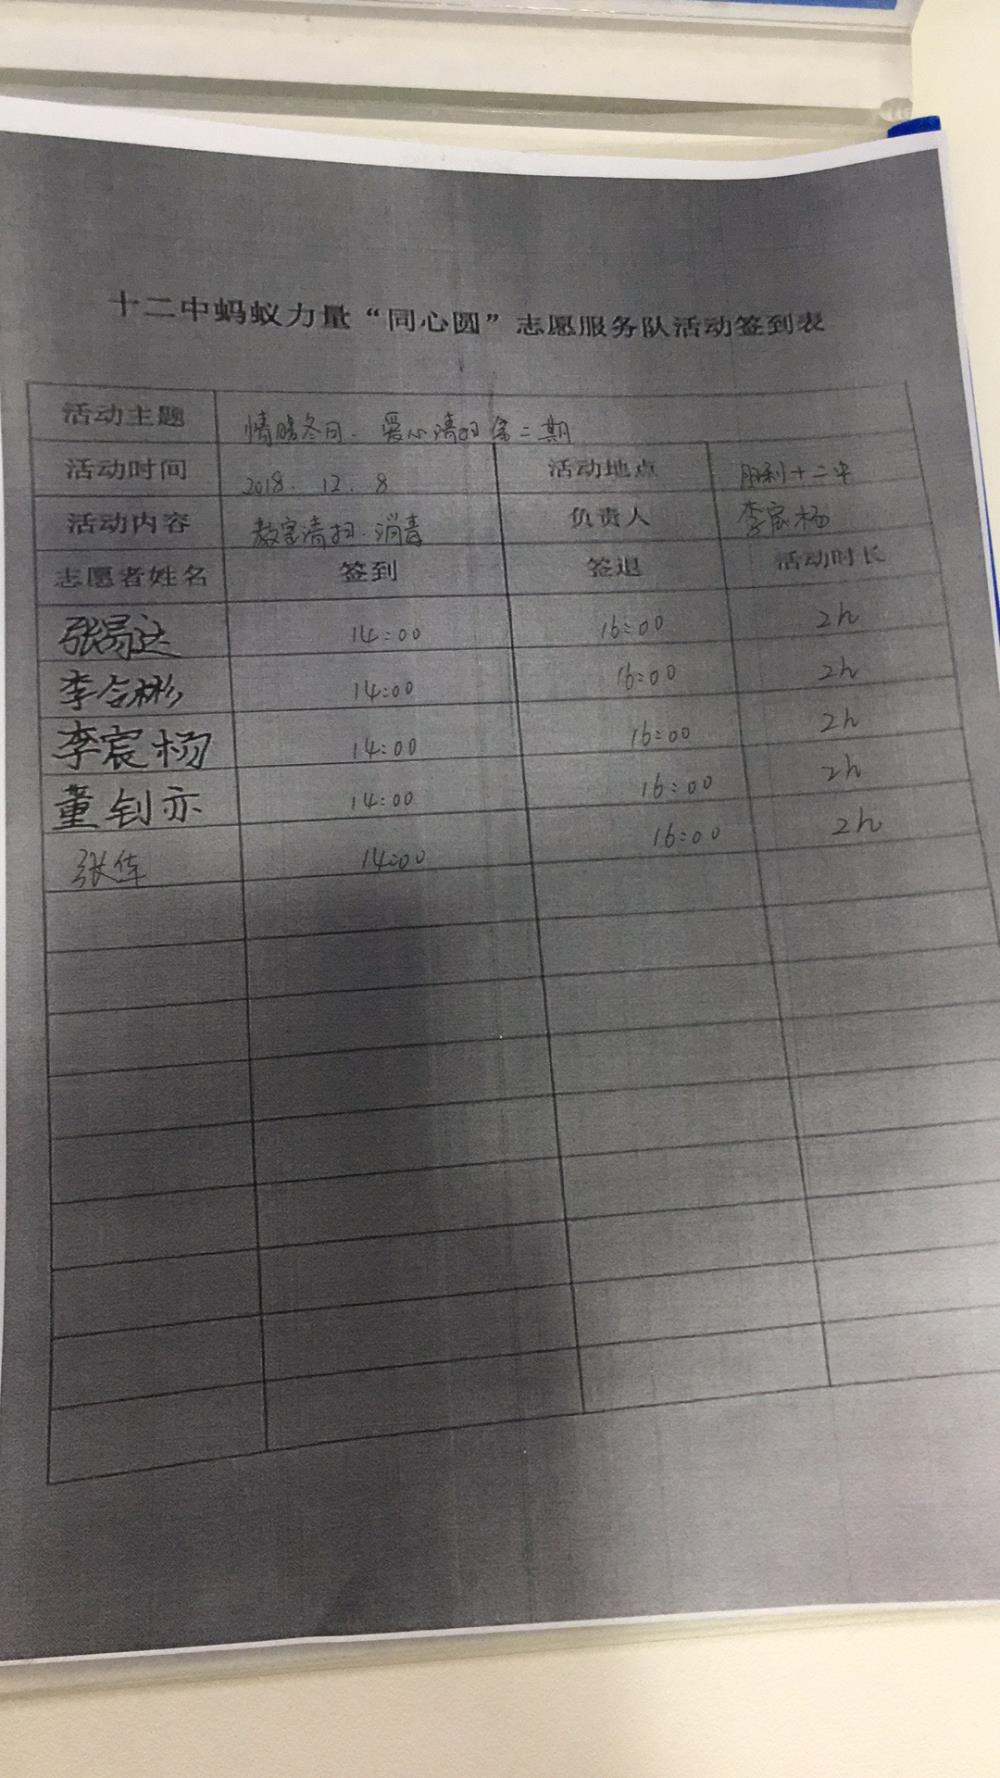 十二中蚂蚁力量“同心圆”志愿服务队活动签到表
活动主题 情暖冬日. 爱心清扫第二期
活动时间 2018. 12. 8 活动地点 胜利十二中
活动内容 教室清扫.消毒 负责人 李宸杨
志愿者姓名 签到 签退 活动时长
张易达 14:00 16:00 2h
李含彬 14:00 16:00 2h
李宸杨 14:00 16:00 2h
董钊亦 14:00 16:00 2h
张 14:00 16:00 2h